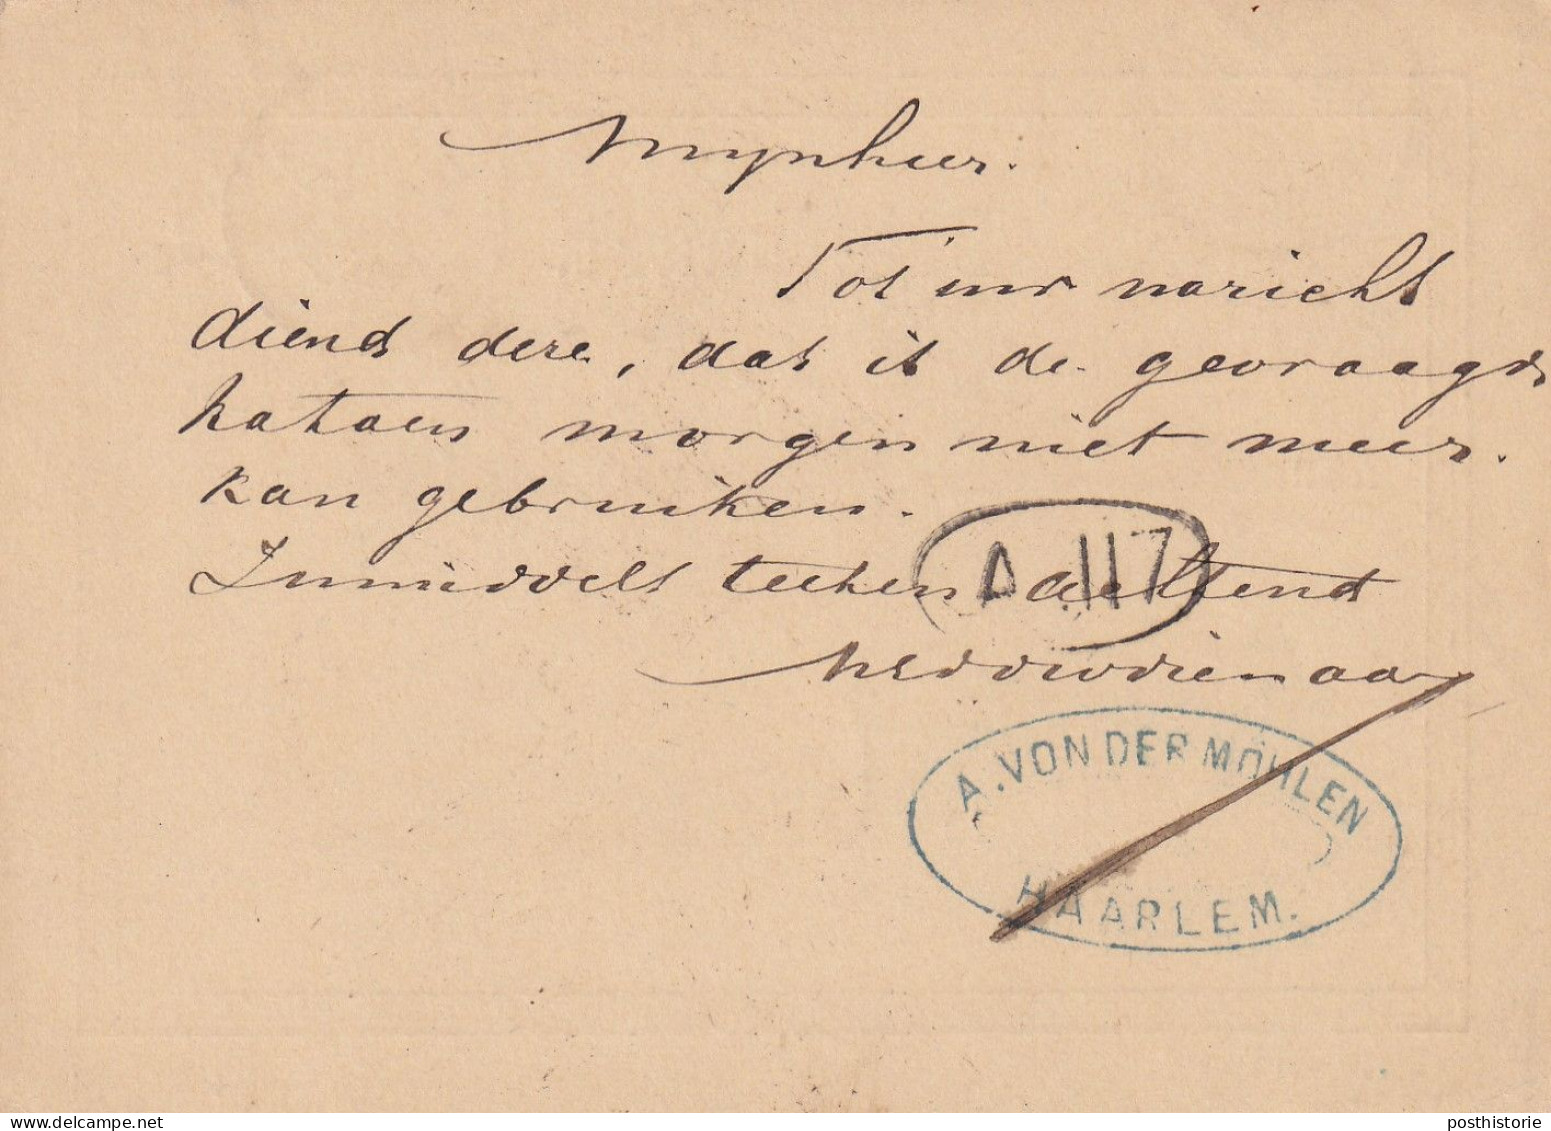 Mynheer.
Tot uw naricht
diend deze, dat ik de gevraagde
kataen morgen niet meer.
kan gebruiken.
Inmiddels teeken achtend
UEDouwdienaar
A. 117
A. VON DER MÖHLEN
HAARLEM.
posthistorie